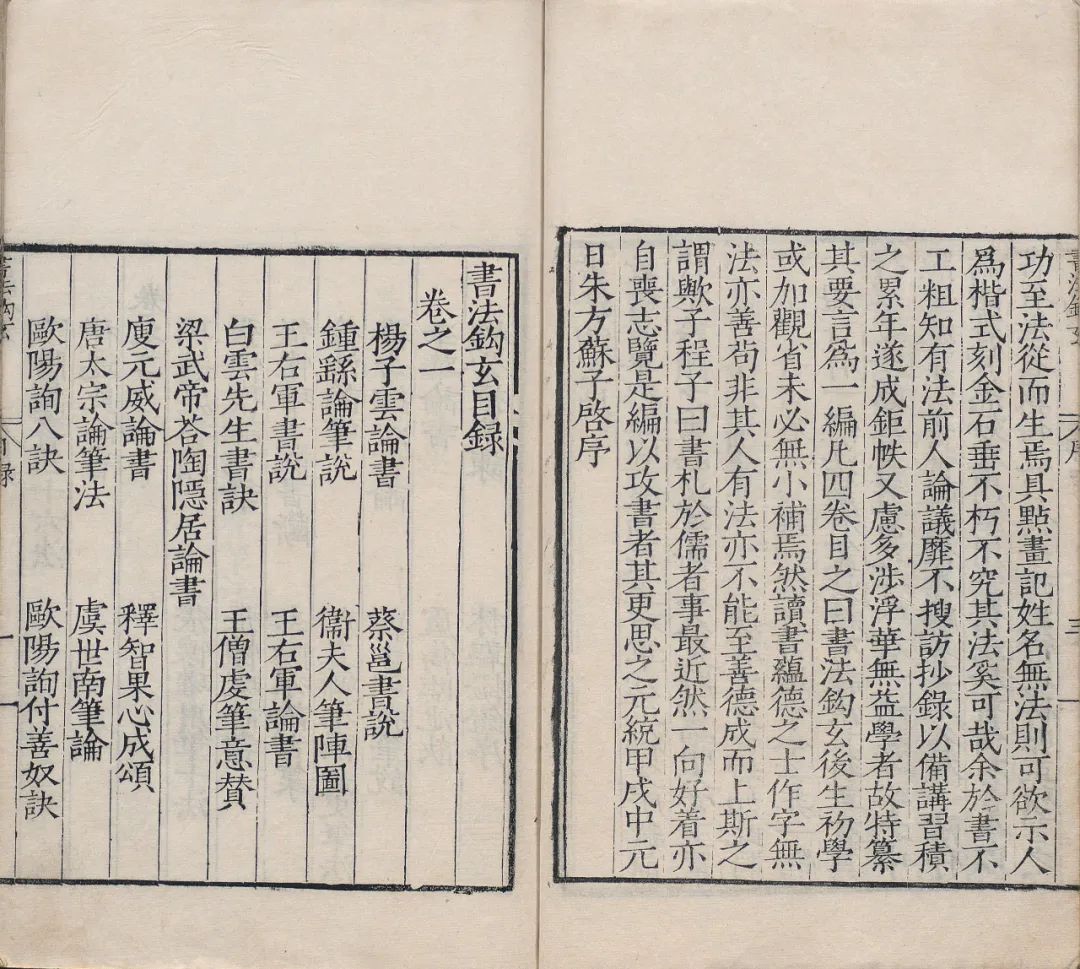 功至法從而生焉具點畫記姓名無法則可欲示人
爲楷式刻金石垂不朽不究其法奚可哉余於書不
工粗知有法前人論議靡不搜訪抄錄以備講習積
之累年遂成鉅帙又慮多涉浮華無益學者故特纂
其要言爲一編凡四卷目之曰書法鈎玄後生初學
或加觀省未必無小補焉然讀書蘊德之士作字無
法亦善苟非其人有法亦不能至善德成而上斯之
謂歟子程子曰書札於儒者事最近然一向好着亦
自喪志覽是編以攻書者其更思之元統甲戌中元
日朱方蘇子啓序
書法鈎玄目録
卷之一
楊子雲論書 蔡邕書説
鍾繇論筆説 衞夫人筆陣圖
王右軍書説 王右軍論書
白雲先生書訣 王僧虔筆意賛
梁武帝荅陶隱居論書
庾元威論書 釋智果心成頌
唐太宗論筆法 虞世南筆論
歐陽詢八訣 歐陽詢付善奴訣